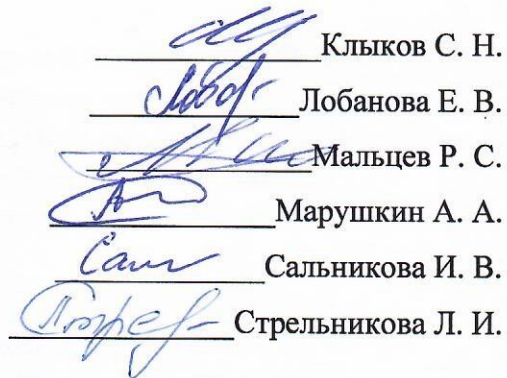 Клыков С. Н.
Лобанова Е. В.
Мальцев Р. С.
Марушкин А. А.
Сальникова И. В.
Стрельникова Л. И.